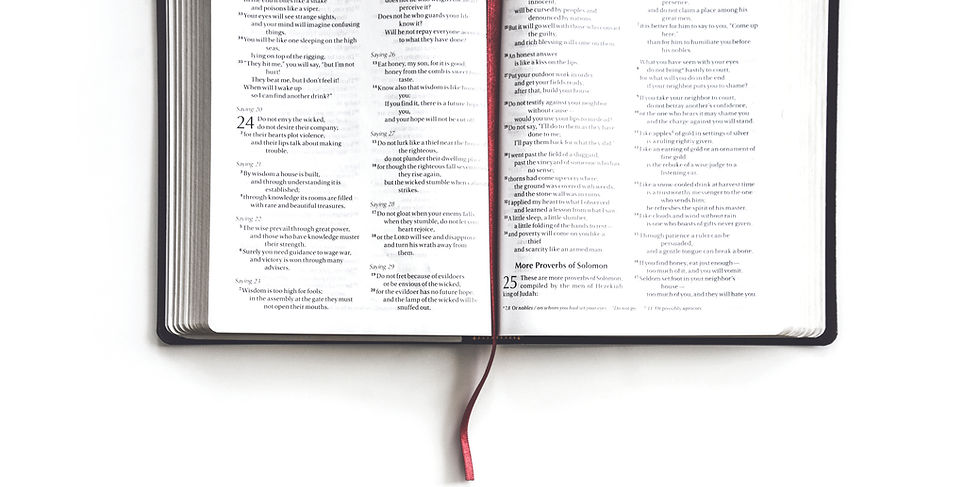 and poisons like a viper.
33 Your eyes will see strange sights,
and your mind will imagine confusing
things.
34 You will be like one sleeping on the high
seas,
lying on top of the rigging.
35 "They hit me," you will say, "but I'm not
hurt!
They beat me, but I don't feel it!
When will I wake up
so I can find another drink?"
Saying 20
24 Do not envy the wicked,
do not desire their company;
2 for their hearts plot violence,
and their lips talk about making
trouble.
Saying 21
3 By wisdom a house is built,
and through understanding it is
established;
4 through knowledge its rooms are filled
with rare and beautiful treasures.
Saying 22
5 The wise prevail through great power,
and those who have knowledge muster
their strength.
6 Surely you need guidance to wage war,
and victory is won through many
advisers.
Saying 23
7 Wisdom is too high for fools;
in the assembly at the gate they must
not open their mouths.
perceive it?
Does not he who guards your life
know it?
Will he not repay everyone
to what they have done?
Saying 26
13 Eat honey, my son, for it is good;
honey from the comb is sweet
taste.
14 Know also that wisdom is like
you:
If you find it, there is a future
you,
and your hope will not be cut
Saying 27
15 Do not lurk like a thief near the
the righteous,
do not plunder their dwelling
16 for though the righteous fall seven
they rise again,
but the wicked stumble when
strikes.
Saying 28
17 Do not gloat when your enemy falls;
when they stumble, do not let
heart rejoice,
18 or the LORD will see and disapprove
and turn his wrath away from
them.
Saying 29
19 Do not fret because of evildoers
or be envious of the wicked,
20 for the evildoer has no future hope,
and the lamp of the wicked will be
snuffed out.
innocent,
will be cursed by peoples and
denounced by nations.
25 But it will go well with those who convict
the guilty,
and rich blessing will come on them.
26 An honest answer
is like a kiss on the lips.
27 Put your outdoor work in order
and get your fields ready;
after that, build your house.
28 Do not testify against your neighbor
without cause—
would you use your lips to mislead?
29 Do not say, "I'll do to them as they have
done to me;
I'll pay them back for what they did."
30 I went past the field of a sluggard,
past the vineyard of someone who has
no sense;
31 thorns had come up everywhere,
the ground was covered with weeds,
and the stone wall was in ruins.
32 I applied my heart to what I observed
and learned a lesson from what I saw:
33 A little sleep, a little slumber,
a little folding of the hands to rest—
34 and poverty will come on you like a
thief
and scarcity like an armed man.
More Proverbs of Solomon
25 These are more proverbs of Solomon,
compiled by the men of Hezekiah
king of Judah:
presence,
and do not claim a place among his
great men;
7 it is better for him to say to you, "Come up
here,"
than for him to humiliate you before
his nobles.
What you have seen with your eyes
8 do not bring hastily to court,
for what will you do in the end
if your neighbor puts you to shame?
9 If you take your neighbor to court,
do not betray another's confidence,
10 or the one who hears it may shame you
and the charge against you will stand.
11 Like apples of gold in settings of silver
is a ruling rightly given.
12 Like an earring of gold or an ornament of
fine gold
is the rebuke of a wise judge to a
listening ear.
13 Like a snow-cooled drink at harvest time
is a trustworthy messenger to the one
who sends him;
he refreshes the spirit of his master.
14 Like clouds and wind without rain
is one who boasts of gifts never given.
15 Through patience a ruler can be
persuaded,
and a gentle tongue can break a bone.
16 If you find honey, eat just enough—
too much of it, and you will vomit.
17 Seldom set foot in your neighbor's
house—
too much of you, and they will hate you.